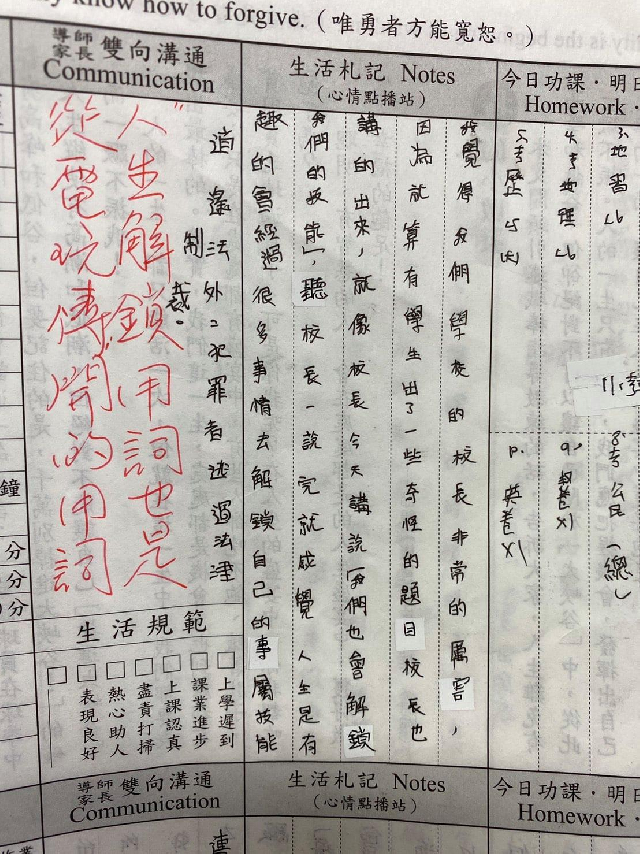 know how to forgive.(唯勇者方能寬恕。)
導師 家長 雙向溝通
Communication
生活札記 Notes
(心情點播站)
今日功課·明日
Homework·
3.地習L6
4.考地理L6
5.考歷L5
8考公民(總)
9.卷x1
P.英卷x1
發覺得我們學校的校長非常的厲害,
因為就算有學生出了一些奇怪的題目校長也
講的出來,就像校長今天講說「我們也會解鎖
我們的技能」,聽校長一說完就感覺人生是有
趣的會經過很多事情去解鎖自己的專屬技能
逍遙法外:犯罪者逃過法律
制裁。
"人生解鎖用詞也是
從電玩傳開的用詞
生活規範
□上學遲到
□課業進步
□上課認真
□盡責打掃
□熱心助人
□表現良好
□
鐘
分
分
0分
導師 家長 雙向溝通
Communication
生活札記 Notes
(心情點播站)
今日功課·明日
Homework·